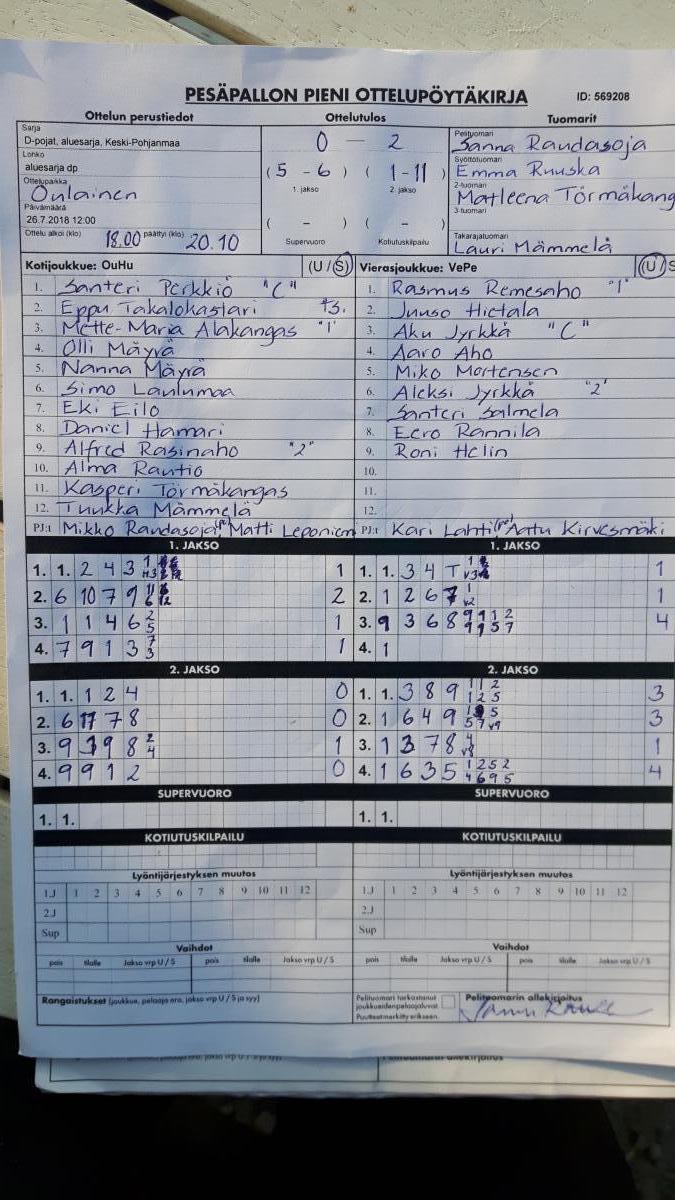 PESÄPALLON PIENI OTTELUPÖYTÄKIRJA ID: 569208
Ottelun perustiedot Ottelutulos Tuomarit
Sarja
D-pojat, aluesarja, Keski-Pohjanmaa
Lohko
aluesarja dp
Ottelupaikka
Oulainen
Päivämäärä
26.7.2018 12:00
Ottelu alkoi (klo) 18.00 päättyi (klo) 20.10
0 - 2
(5 - 6) (1-11)
1. jakso 2. jakso
( - ) ( - )
Supervuoro Kotiutuskilpailu
Pelituomari
Sanna Raudasoja
Syöttötuomari
Emma Ruuska
2-tuomari
Matleena Törmäkang
3-tuomari
Takarajatuomari
Lauri Mämmelä
Kotijoukkue: OuHu (U/S)
1. Santeri Perkkiö "C"
2. Eppu Takalokastari
3. Mette-Maria Alakangas "1"
4. Olli Mäyrä
5. Nanna Mäyrä
6. Simo Laulumaa
7. Eki Eilo
8. Daniel Hamari
9. Alfred Rasinaho "2"
10. Alma Rautio
11. Kasperi Törmäkangas
12. Tuukka Mämmelä
PJ:t Mikko Raudasoja Matti Leponiem
Vierasjoukkue: VePe (U/S
1. Rasmus Remesaho "1"
2. Juuso Hietala
3. Aku Jyrkkä "C"
4. Aaro Aho
5. Miko Mortensen
6. Aleksi Jyrkkä "2"
7. Santeri Salmela
8. Eero Rannila
9. Roni Helin
10.
11.
12.
PJ:t Kari Lahti (pe) Aatu Kirvesmäki
1. JAKSO 1. JAKSO
1. 1. 2 4 3 1
2. 6 10 7 9 2
3. 1 1 4 6 2 5 1
4. 7 9 1 3 7 3 1
1. 1. 3 4 T 1
2. 1 2 6 7 1
3. 9 3 6 8 4
4. 1
2. JAKSO 2. JAKSO
1. 1. 1 2 4 0
2. 6 11 7 8 0
3. 9 3 9 8 2 4 1
4. 9 9 1 2 0
1. 1. 3 8 9 3
2. 1 6 4 9 3
3. 1 3 7 8 1
4. 1 6 3 5 1 2 5 2 4 6 9 5 4
SUPERVUORO SUPERVUORO
1. 1. 1. 1.
KOTIUTUSKILPAILU KOTIUTUSKILPAILU
Lyöntijärjestyksen muutos Lyöntijärjestyksen muutos
1.J 1 2 3 4 5 6 7 8 9 10 11 12 1.J 1 2 3 4 5 6 7 8 9 10 11 12
2.J 2.J
Sup Sup
Vaihdot Vaihdot
pois tilalle Jakso vrp U / S pois tilalle Jakso vrp U / S pois tilalle Jakso vrp U / S pois tilalle Jakso vrp U / S
Rangaistukset (joukkue, pelaaja nro, jakso vrp U / S ja syy)
Pelituomari tarkastanut
joukkueidenpelaajaluvat
Puutteet merkitty erikseen.
Pelituomarin allekirjoitus